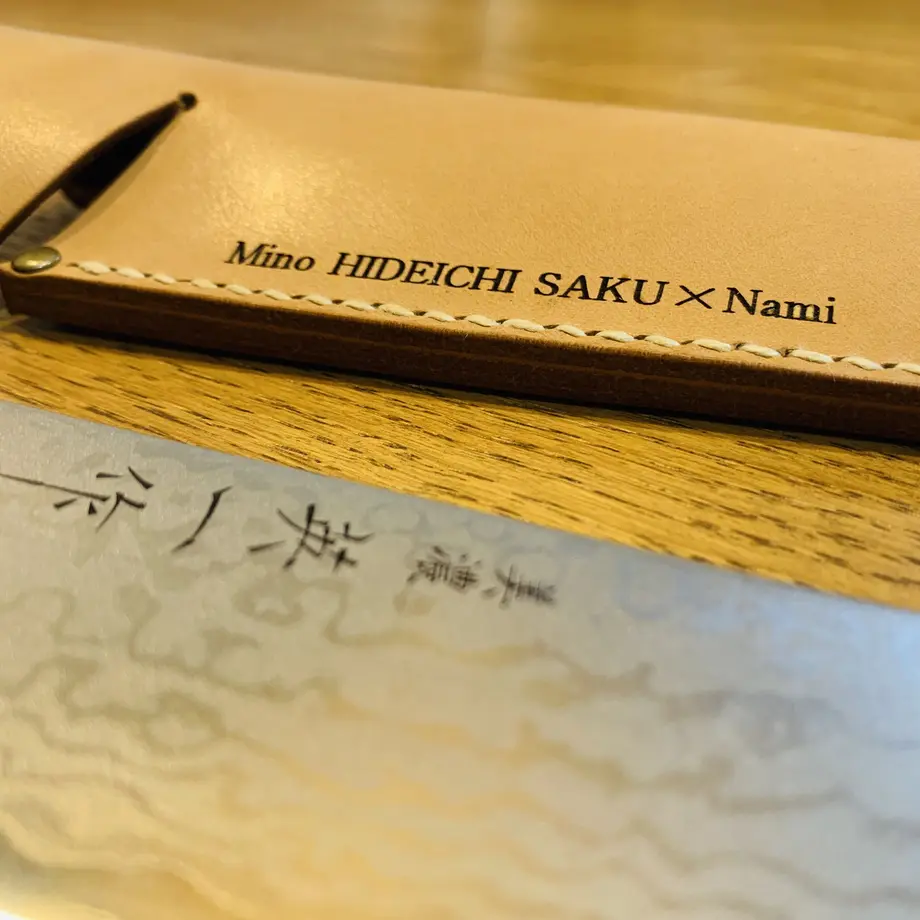 Mino HIDEICHI SAKU×Nami
美濃 英一作